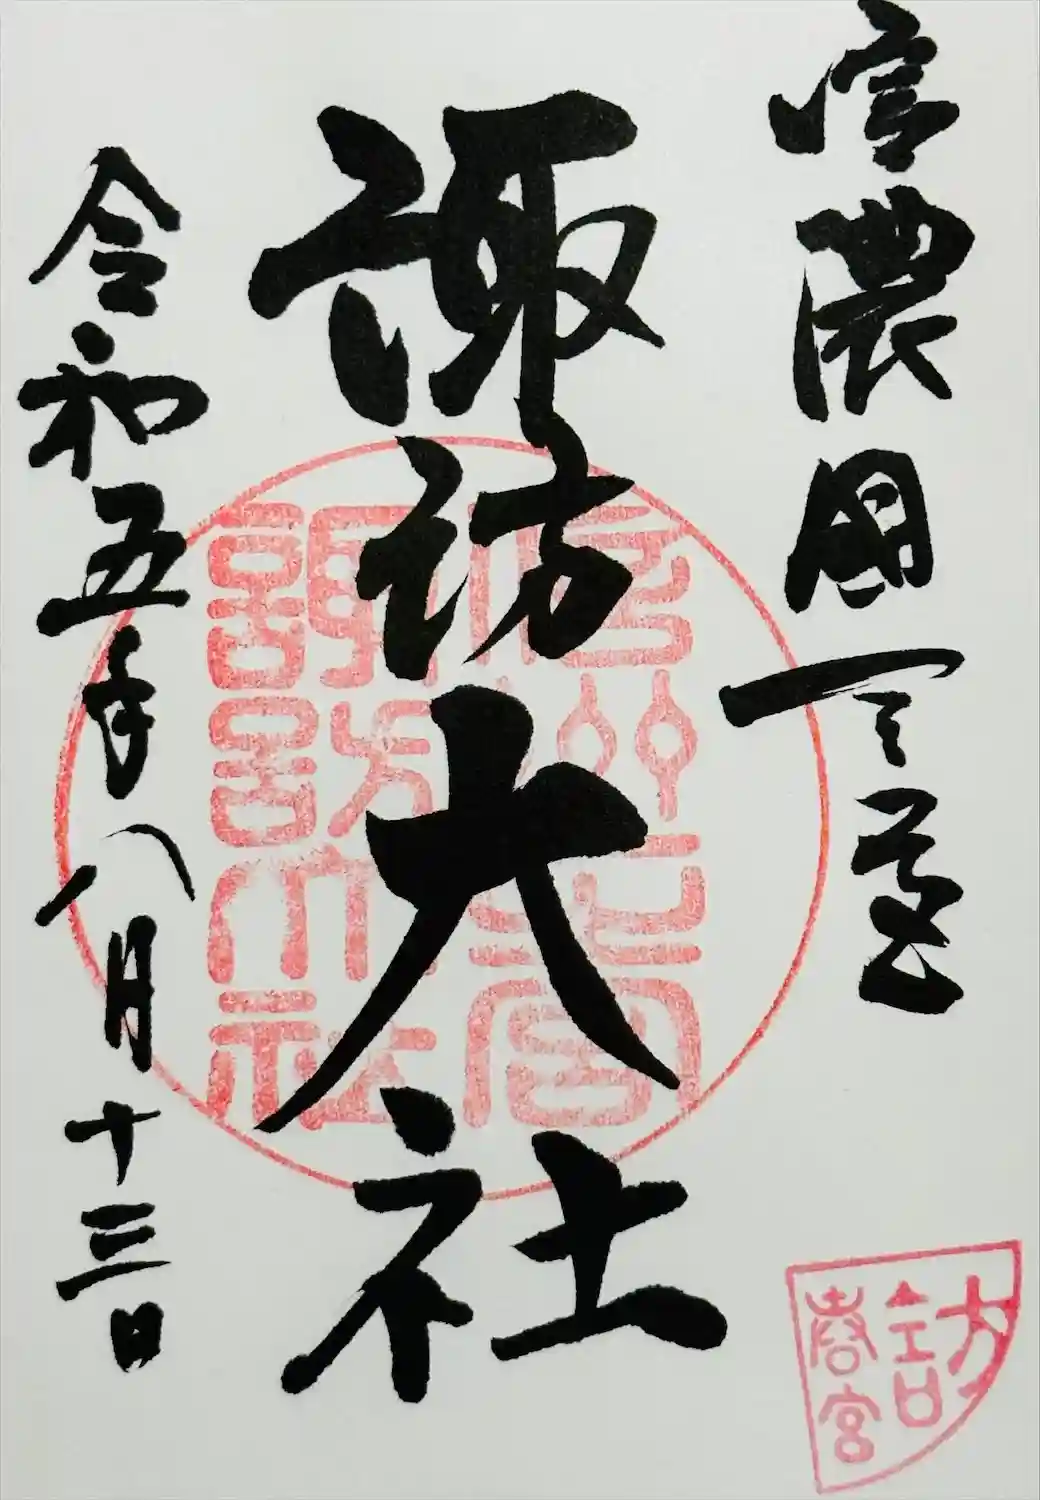 信濃國一之宮
諏訪大社
令和五年八月十三日
諏訪大社
訪
春宮